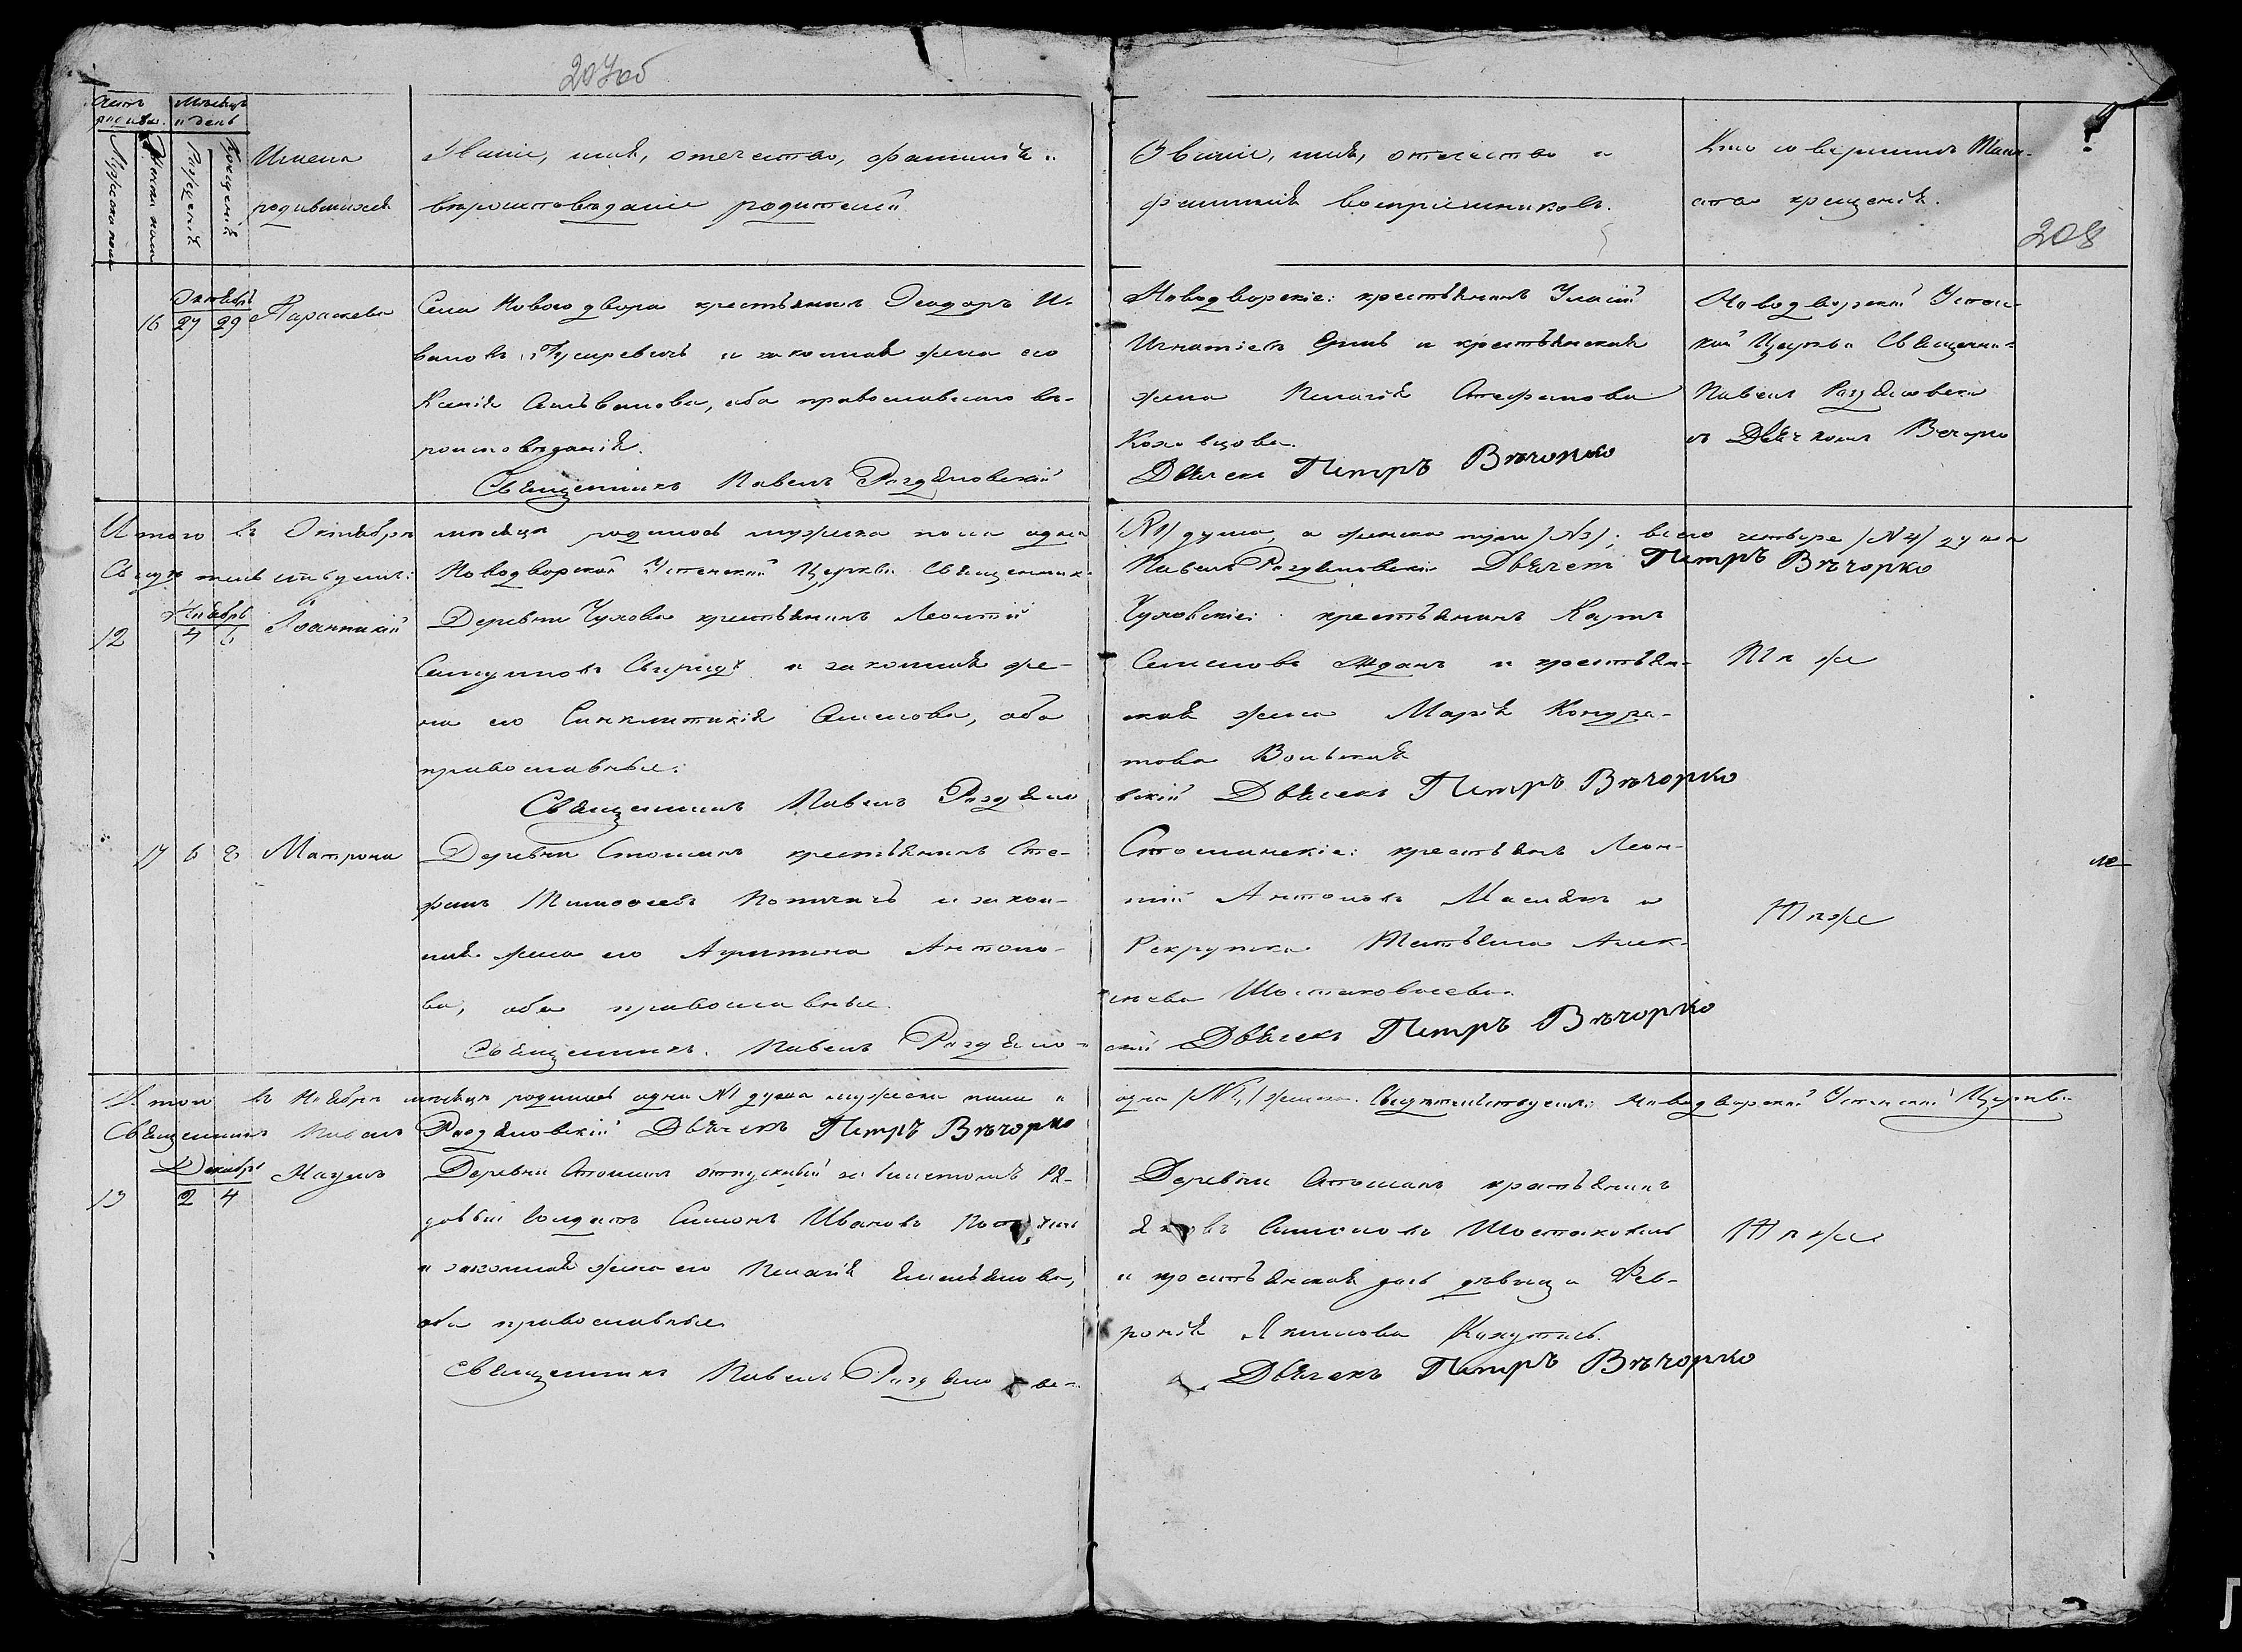 207об
Счетъ родивш.
Мѣсяцъ и день
Мужеска пола
Женска пола
Рожденія
Крещенія
Имена
родившихся
Званіе, имя, отечество, фамилія и
вѣроисповѣданіе родителей
Званіе, имя, отечество и
фамилія воспріемниковъ.
Кто совершилъ Таин-
ство крещенія.
208
Октябрь
16 27 29 Параскева
Села Новаго двора крестьянинъ Ѳеодоръ И-
вановъ и законная жена его
Ксенія Сильванова, оба православнаго вѣ-
роисповѣданія.
Священникъ Павелъ Раздяловскій
Новодворскіе: крестьянинъ
Игнатіевъ и крестьянская
жена Пелагія Стефанова
Дьячекъ Петръ Вѣчорко
Новодворской Успен-
кой Церкви Священни-
Павелъ Раздяловскі
съ Дьячкомъ Вечорко
Итого въ Октябрѣ мѣсяцѣ родилось мужеска пола одна
/№1/ душа, а женска три /№3/; всего четыре /№4/ души
Свидѣтельствуемъ: Новодворской Успенской Церкви Священник
Павелъ Раздяловскій Дьячекъ Петръ Вѣчорко
Ноябрь
12 4 Іоанникій
Деревни Чухова крестьянинъ Леонтій
и законная же-
на его Синклитикія Семенова, оба
православные.
Священникъ Павелъ Раздяло
Чуховскіе: крестьянинъ Карпъ
Семеновъ Жданъ и крестьян-
ская жена Марія Кондра-
това
вскій Дьячекъ Петръ Вѣчорко
Тѣ же
17 6 8 Матрона
Деревни Стошанъ крестьянинъ Сте-
фанъ Тимоѳеевъ и закон-
ная жена его Агрипина Антоно-
ва, оба православные.
Священникъ Павелъ Раздяло-
Стошанскіе: крестьянъ Леон-
тій Антоновъ и
Рекрутка Татьяна Алек-
сѣева
скій Дьячекъ Петръ Вѣчорко
Тѣже
Итого въ Ноябрѣ мѣсяцѣ родилось одна №1 душа мужеска пола и
одна /№1/ женска. Свидѣтельствуемъ: Новодворской Успенской Церкви
Священникъ Павелъ Раздяловскій Дьячекъ Петръ Вѣчорко
Декабрь
13 2 4 Наумъ
Деревни Стошанъ отпускный за билетомъ Ря-
довый Солдатъ Симонъ Ивановъ
и законная жена его Пелагія Емельянова,
оба православные
Священникъ Павелъ Раздяловс-
Деревни Стошанъ крестьянинъ
Яковъ Симоновъ Шостаковичъ
и крестьянская дочь дѣвица Фев-
ронія Якимова
Дьячекъ Петръ Вѣчорко
Тѣ же